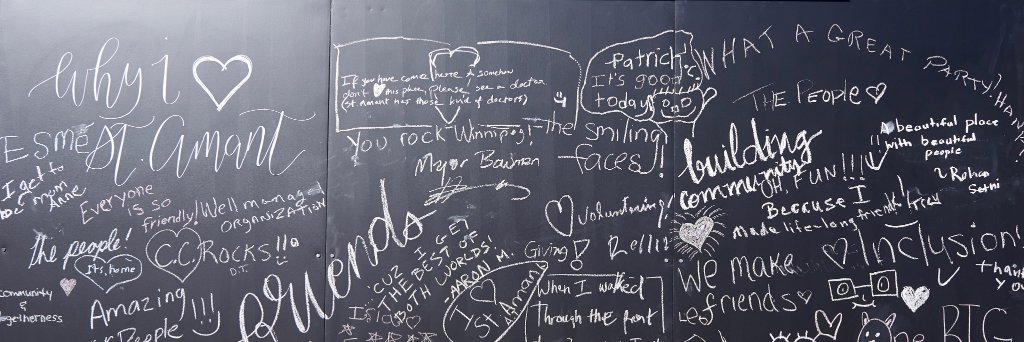 why i ♡
ST. Amant
Esme
I get to
be mom
Anne
Everyone
is so
friendly!
Well managed
ORGANIZATION
the people!
It's home
C.C.
ROCKS!!
D.T.
Community
&
Togetherness
Amazing
People
!!!
friends
If you have come here & somehow
don't ♥ this place, please see a doctor
(St Amant has those kind of doctors)
You rock Winnipeg!
Mayor Bowman
the smiling
faces!!
Patrich!
It's good
today
'CUZ I GET
THE BEST OF
BOTH WORLDS!
-AARON M.
Isla
I ♡
St. Amant
Volunteering!
Giving!
Kelli!
When I walked
Through the front
WHAT A GREAT PARTY!
THE PEOPLE ♡
building
community
OH, FUN!!!!
Because I
Made life-long friends here
A beautiful place
with beautiful
people
Rohan
Sethi
We make
friends ♡
♡ Inclusion!
thank
you
BIG